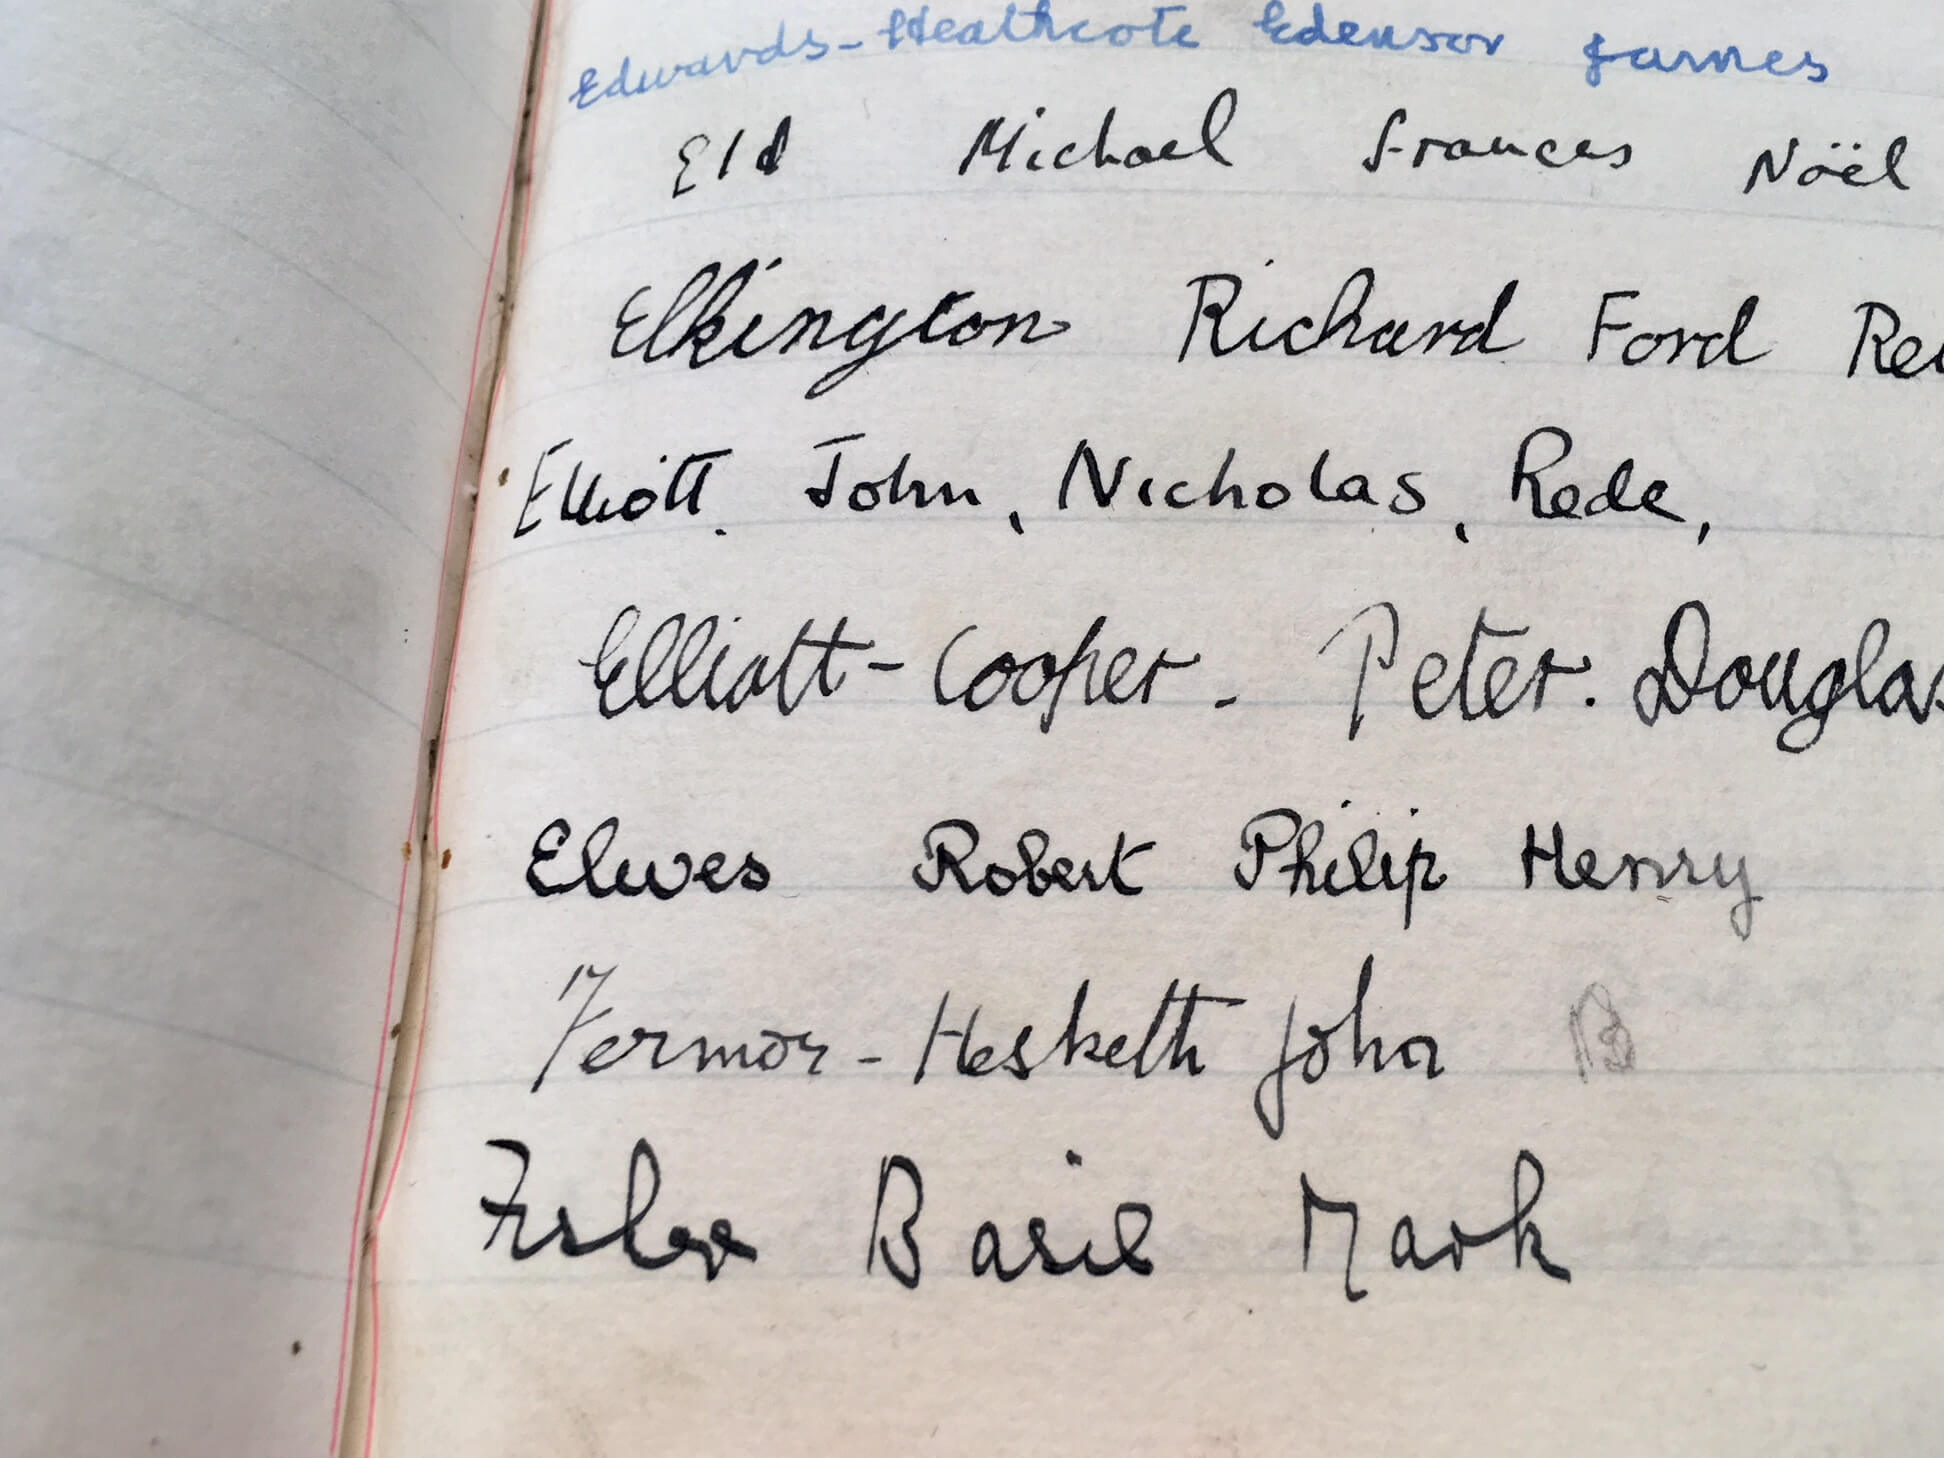 Edwards-Heathcote Edensor James
Eld Michael Frances Nöel
Elkington Richard Ford
Elliott. John, Nicholas, Rede,
Elliott-Cooper. Peter. Douglas
Elwes Robert Philip Henry
Fermor-Hesketh John B
Basil Mark